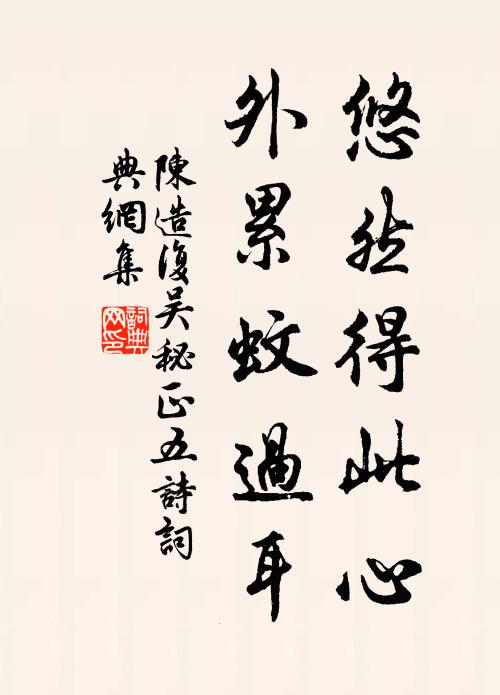 悠然得此心
外累蚊過耳
陳造復吴秘正五詩詞
典網集
詞典網印